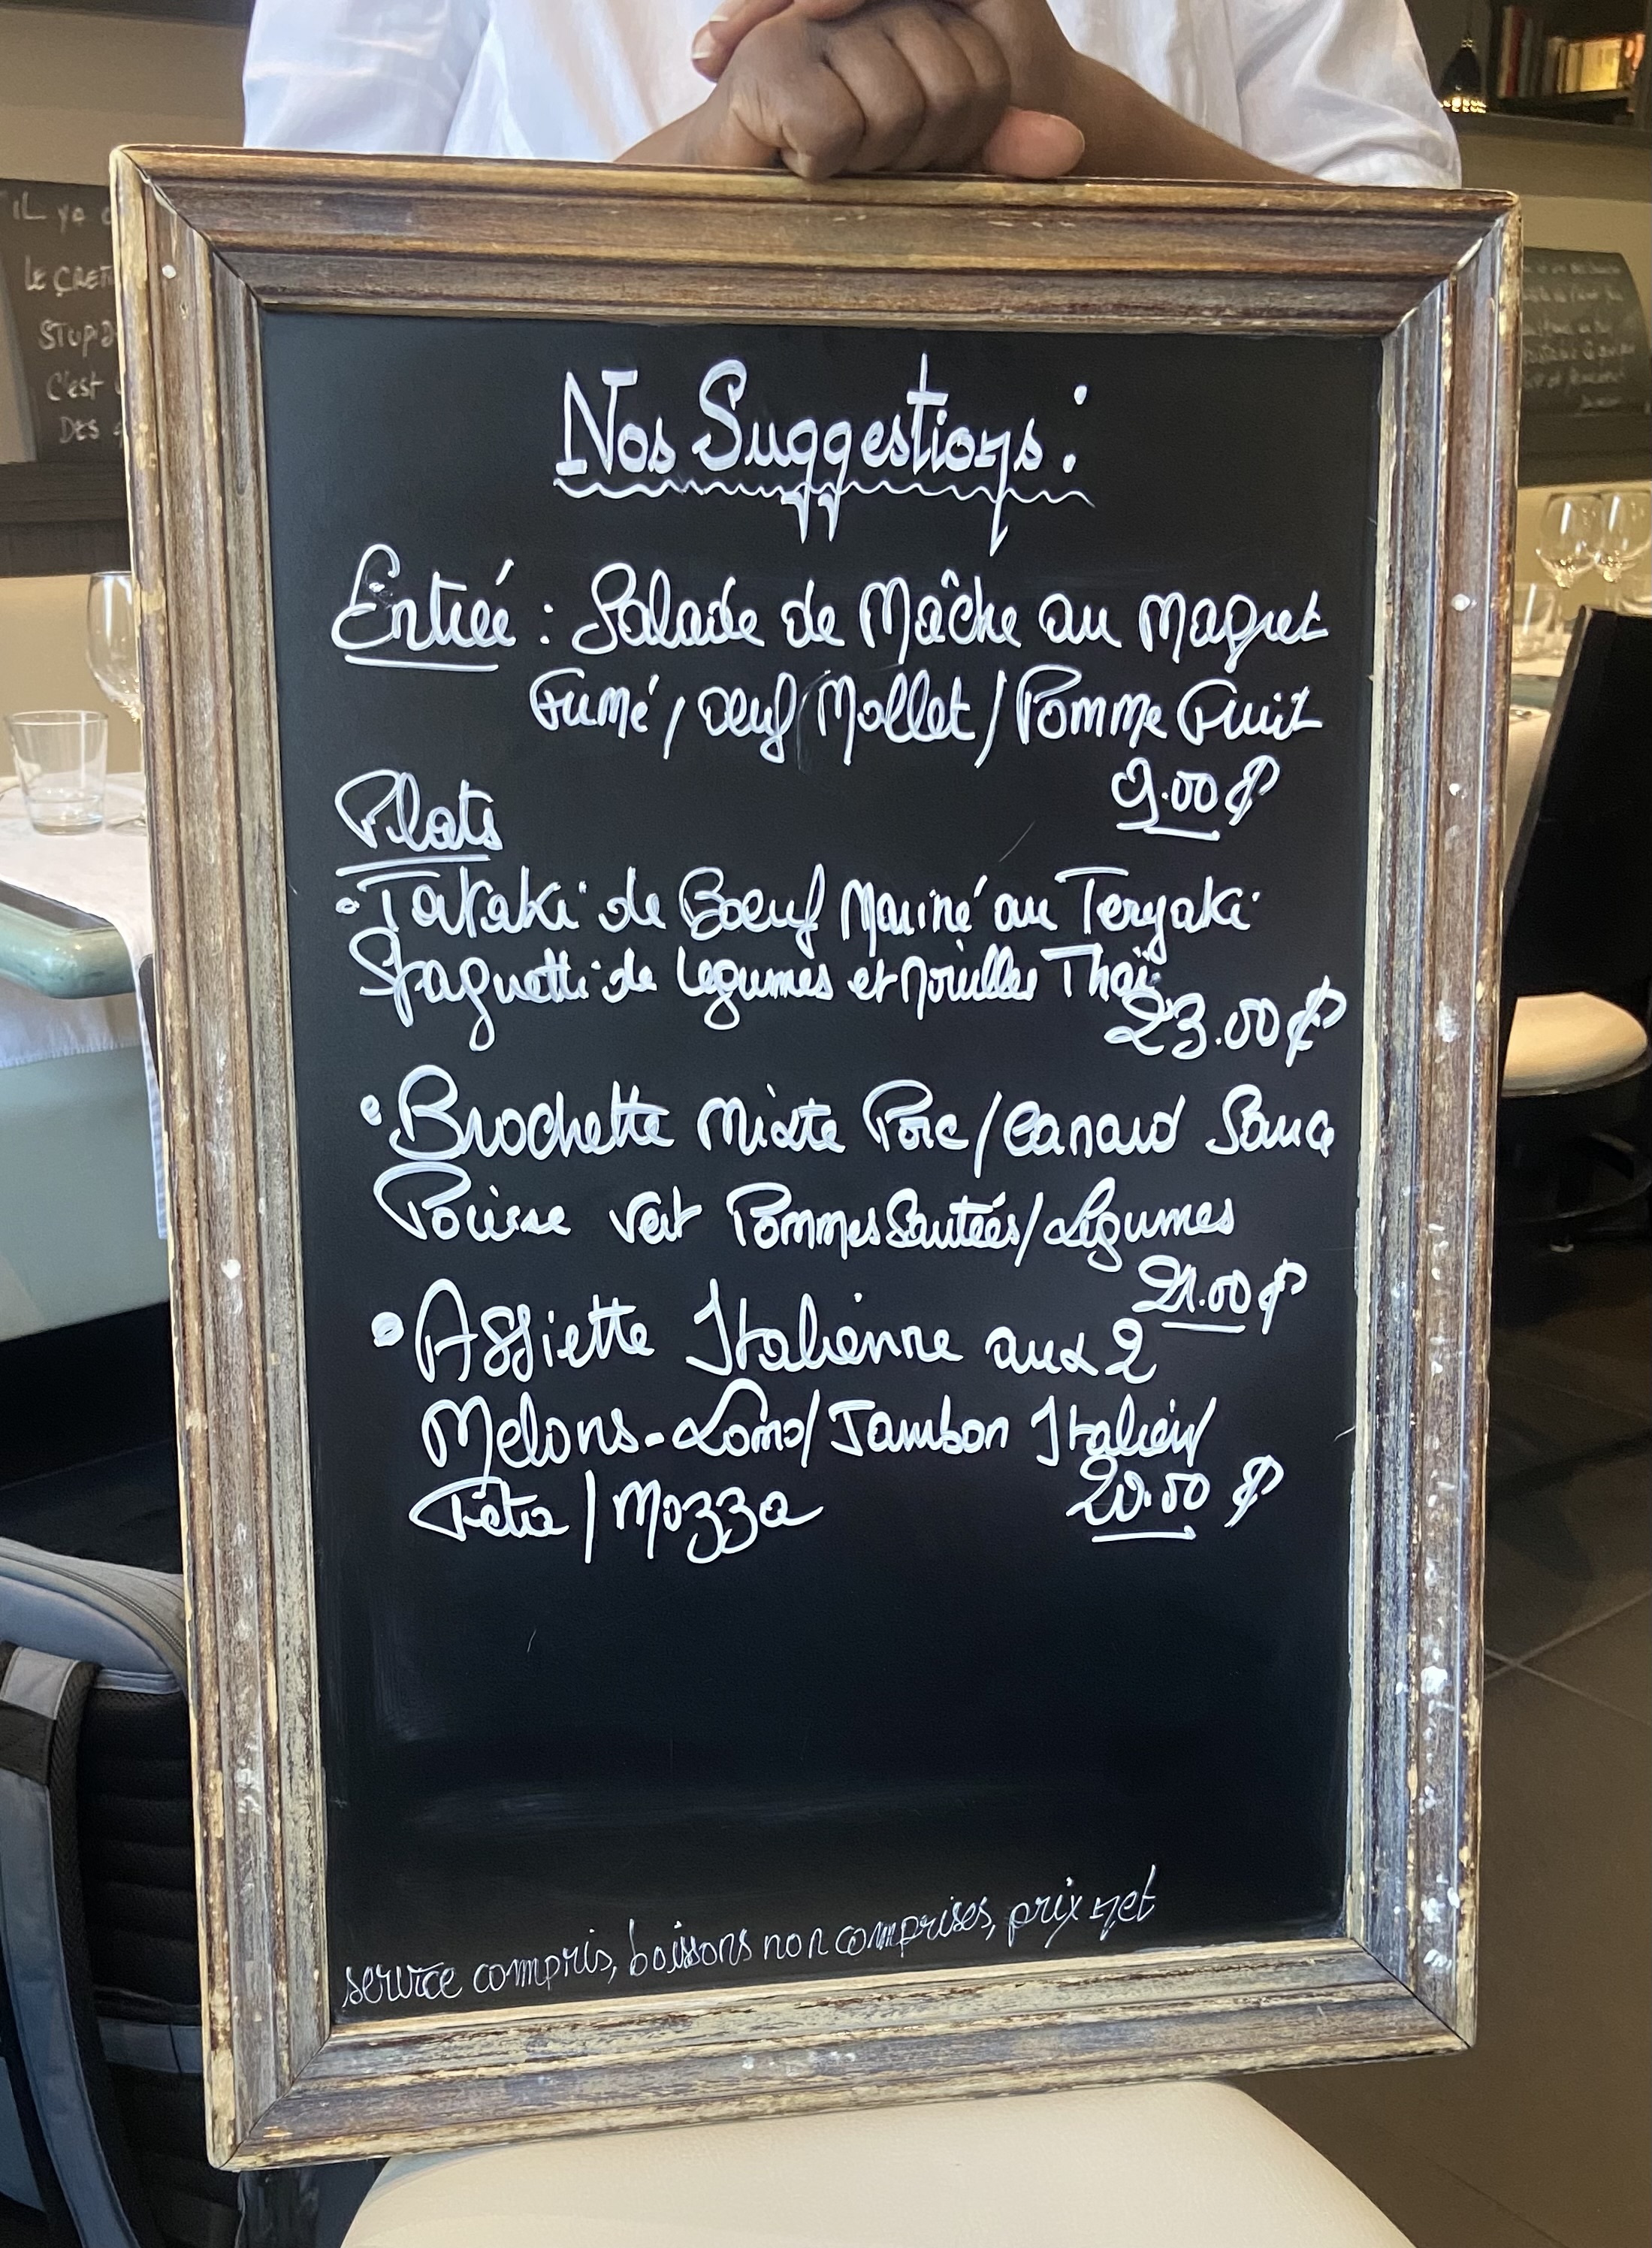 Nos Suggestions :
Entrée : Salade de Mâche au Magret
Fumé / Oeuf Mollet / Pomme Fruit
9.00 €
Plats
• Tataki de Boeuf Mariné au Teryaki
Spaguetti de Légumes et Nouilles Thaï
23.00 €
• Brochette Mixte Porc / Canard Sauce
Poivre Vert Pommes Sautées / Légumes
21.00 €
• Assiette Italienne aux 2
Melons - Lomo / Jambon Italien /
Feta / Mozza 20.00 €
service compris, boissons non comprises, prix net
"IL ya
LE CRET
STUPID
C'est
DES